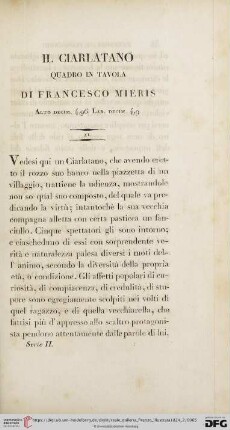 IL CIARLATANO
QUADRO IN TAVOLA
DI FRANCESCO MIERIS
Vedesi qui un Ciarlatano, che avendo eret-
to il rozzo suo banco nella piazzetta di un
villaggio, trattiene la udienza, mostrandole
non so qual suo composto, del quale va pre-
dicando la virtù; intantochè la sua vecchia
compagna alletta con certa pasticca un fan-
ciullo. Cinque spettatori gli sono intorno;
e ciascheduno di essi con sorprendente ve-
rità e naturalezza palesa diversi i moti del-
l' animo, secondo la diversità della propria
età, o condizione. Gli affetti popolari di cu-
riosità, di compiacenza, di credulità, di stu-
pore sono egregiamente scolpiti nei volti di
quel ragazzo, e di quella vecchiarella, che
fatrisi più d' appresso allo scaltro protagoni-
sta pendono attentamente dalle parole di lui,
Serie II.
DFG